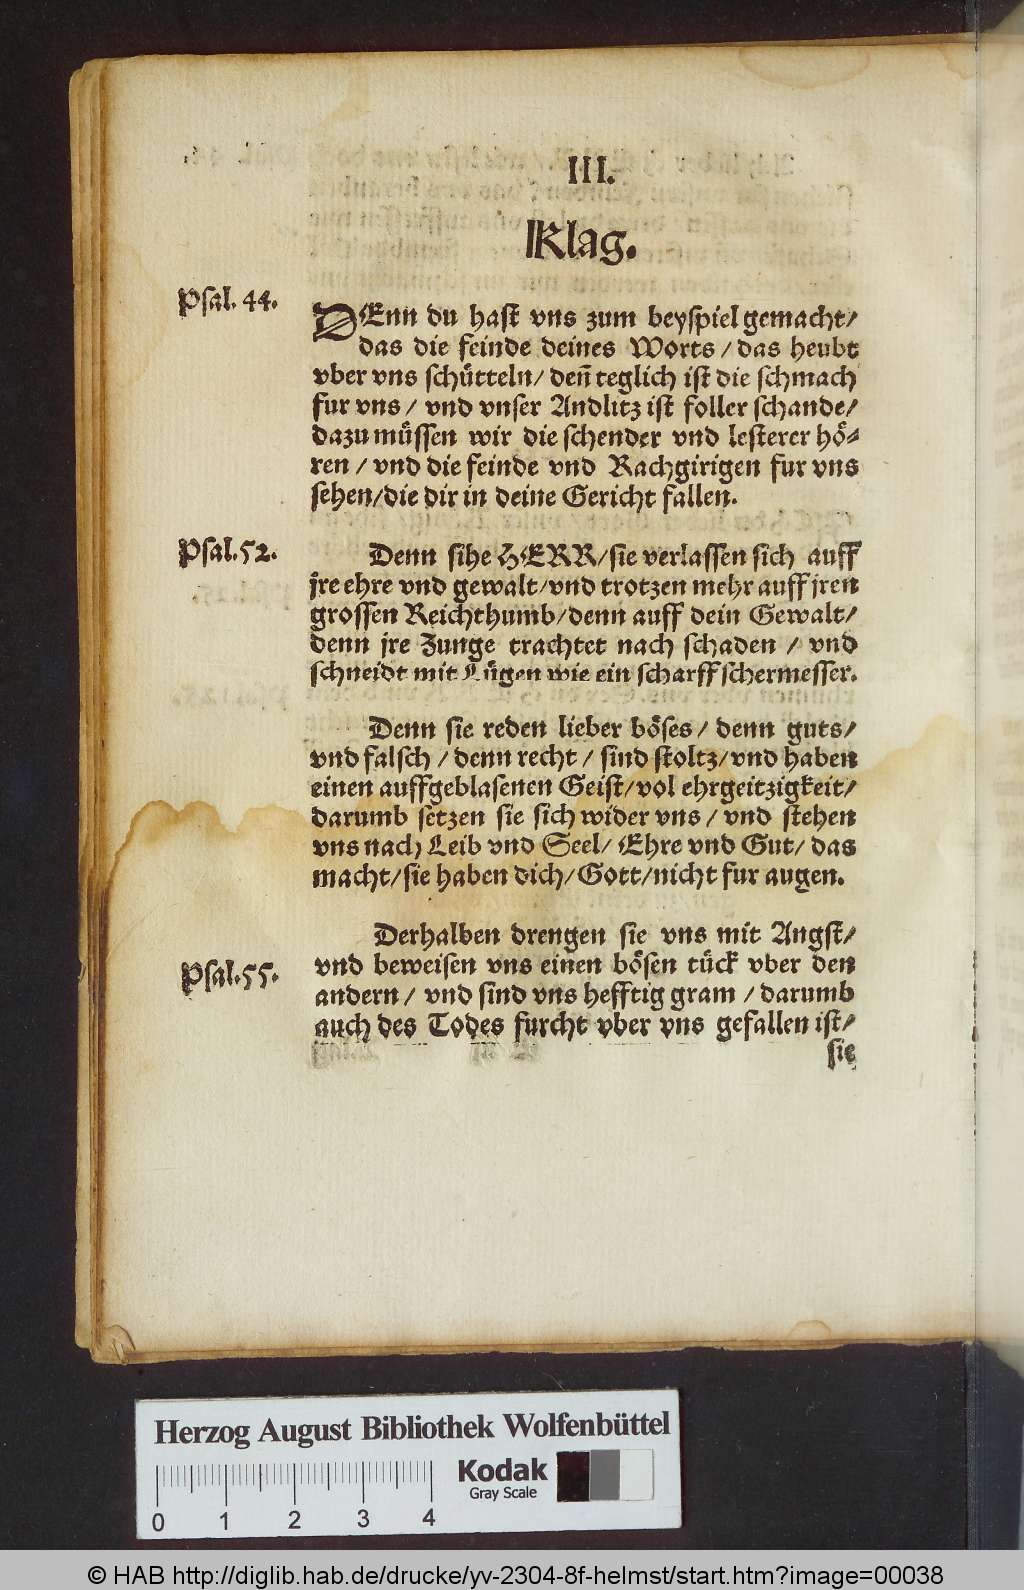 III.
Klag.
Psal. 44.
DEnn du hast vns zum beyspiel gemacht/
das die feinde deines Worts/das heubt
vber vns schütteln/deñ teglich ist die schmach
fur vns/ vnd vnser Andlitz ist foller schande/
dazu müssen wir die schender vnd lesterer hö⸗
ren/vnd die feinde vnd Rachgirigen fur vns
sehen/die dir in deine Gericht fallen.
Psal. 52.
Denn sihe HERR/sie verlassen sich auff
jre ehre vnd gewalt/vnd trotzen mehr auff jren
grossen Reichthumb/denn auff dein Gewalt/
denn jre Zunge trachtet nach schaden / vnd
schneidt mit Lügen wie ein scharff schermesser.
Denn sie reden lieber böses/ denn guts/
vnd falsch / denn recht / sind stoltz/vnd haben
einen auffgeblasenen Geist/vol ehrgeitzigkeit/
darumb setzen sie sich wider vns / vnd stehen
vns nach Leib vnd Seel/ Ehre vnd Gut/ das
macht/sie haben dich/Gott/nicht fur augen.
Derhalben drengen sie vns mit Angst/
Psal. 55.
vnd beweisen vns einen bösen tück vber den
andern / vnd sind vns hefftig gram / darumb
auch des Todes furcht vber vns gefallen ist/
sie
Herzog August Bibliothek Wolfenbüttel
Kodak
Gray Scale
0 1 2 3 4
© HAB http://diglib.hab.de/drucke/yv-2304-8f-helmst/start.htm?image=00038